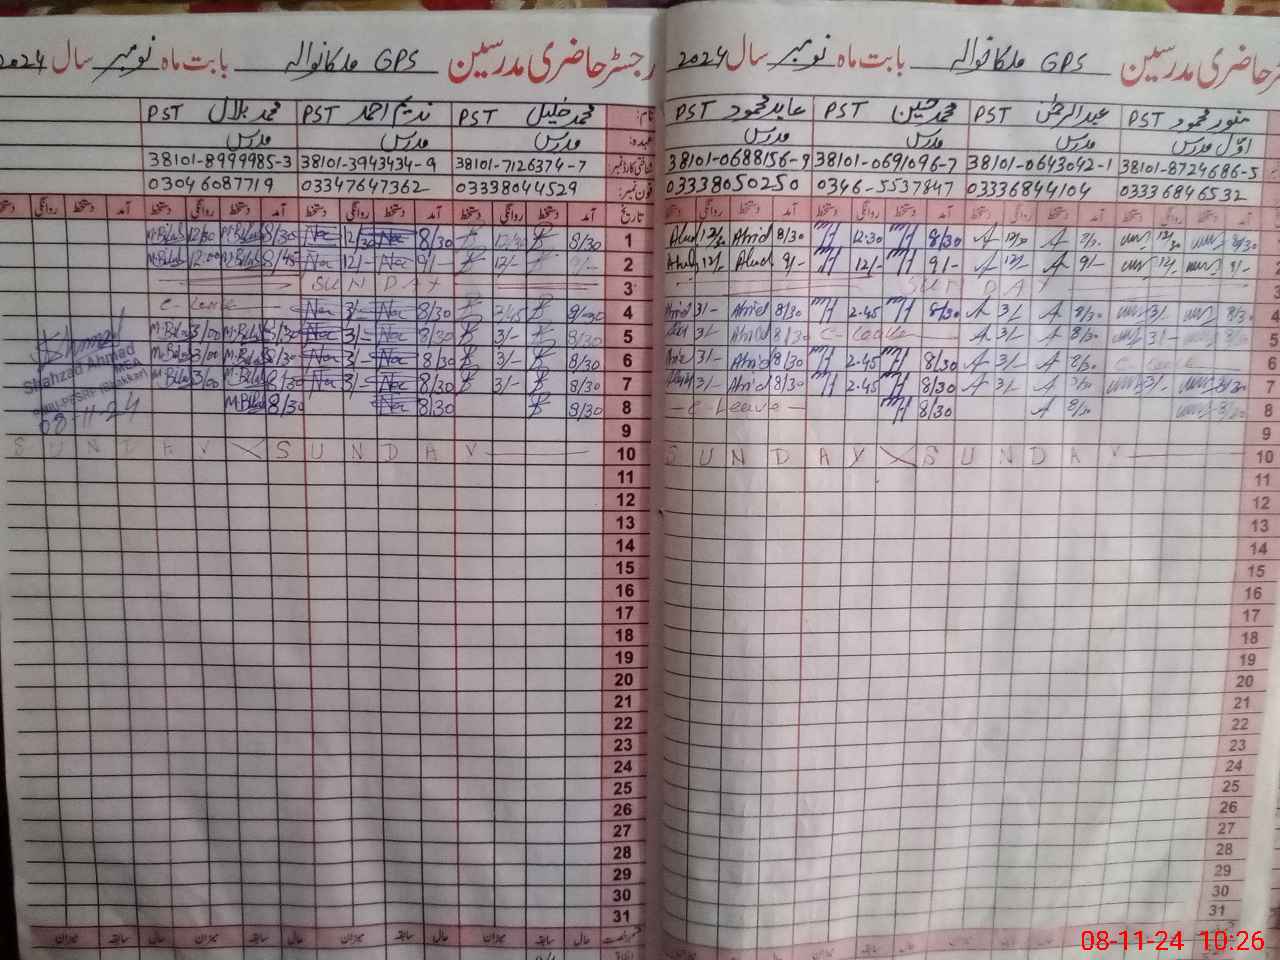 رجسٹر حاضری مدرسین GPS ملکانوالہ بابت ماہ نومبر سال 2024
نام: منور محمود PST عبدالرحمٰن PST محمد حسین PST عابد محمود PST
عہدہ: اوّل مدرس مدرس مدرس مدرس
38101-8724686-5 38101-0643042-1 38101-0691096-7 38101-0688156-9
03336846532 03336844104 0346-5537847 03338050250
1 8/30 12/30 8/30 12/30 8/30 12:30 8/30 12/30
2 9/- 12/- 9/- 12/- 9/- 12/- 9/- 12/-
3 SUNDAY
4 8/30 3/- 8/30 3/- 8/30 2:45 8/30 3/-
5 8/30 3/- 8/30 3/- C-Leave 8/30 3/-
6 C-Leave 8/30 3/- 8/30 2:45 8/30 3/-
7 8/30 3/- 8/30 3/- 8/30 2:45 8/30 3/-
8 8/30 8/30 8/30 C-Leave
9
10 SUNDAY SUNDAY
11
12
13
14
15
16
17
18
19
20
21
22
23
24
25
26
27
28
29
30
31
رجسٹر حاضری مدرسین GPS ملکانوالہ بابت ماہ نومبر سال 2024
نام: محمد خلیل PST ندیم احمد PST محمد بلال PST
عہدہ: مدرس مدرس مدرس
شناختی کارڈ نمبر: 38101-7126374-7 38101-3943434-9 38101-8999985-3
فون نمبر: 03338044529 03347647362 03046087719
تاریخ آمد دستخط روانگی دستخط آمد دستخط روانگی دستخط آمد دستخط روانگی دستخط آمد دستخط روانگی دستخط
1 8/30 12/30 8/30 12/30 8/30 12/30
2 9/- 12/- 9/- 12/- 8/45 12:00
3 SUNDAY
4 8/30 2/45 8/30 3/- C-Leave
5 8/30 3/- 8/30 3/- 8/30 3/00
6 8/30 3/- 8/30 3/- 8/30 3/00
7 8/30 3/- 8/30 3/- 8/30 3/00
8 8/30 8/30 8/30
9
10 SUNDAY SUNDAY
11
12
13
14
15
16
17
18
19
20
21
22
23
24
25
26
27
28
29
30
31
حال سابقہ میزان حال سابقہ میزان حال سابقہ میزان
Shahzad Ahmad
MEA
(Bhakkar)
08-11-24
08-11-24 10:26